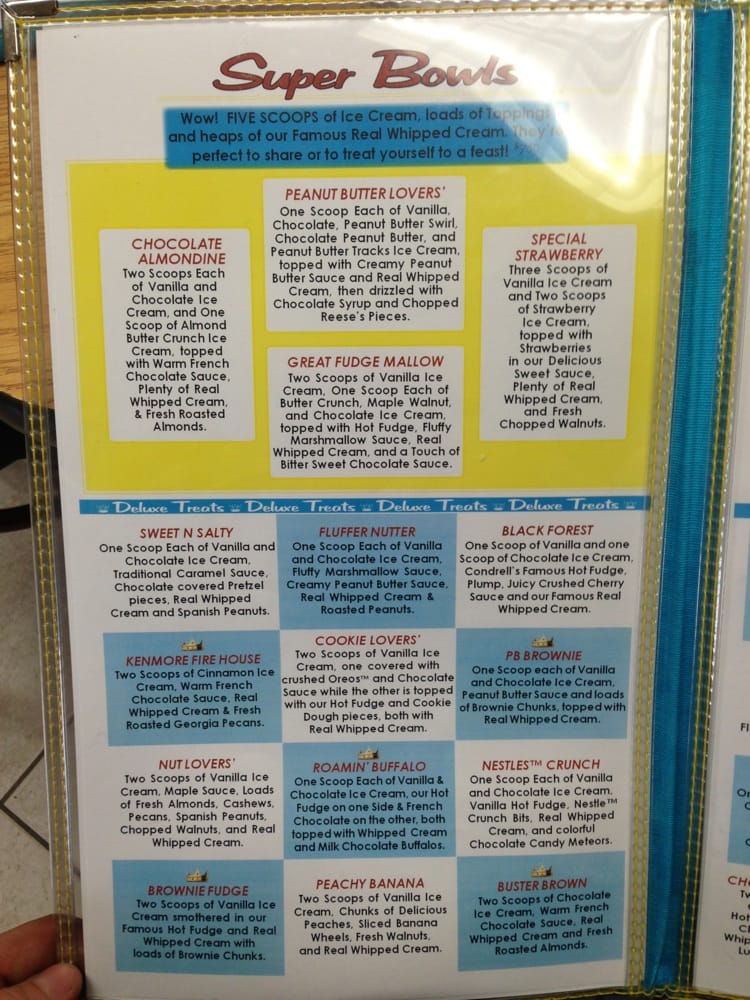 Super Bowls
Wow! FIVE SCOOPS of Ice Cream, loads of Toppings
and heaps of our Famous Real Whipped Cream. They're
perfect to share or to treat yourself to a feast!
CHOCOLATE
ALMONDINE
Two Scoops Each
of Vanilla and
Chocolate Ice
Cream, and One
Scoop of Almond
Butter Crunch Ice
Cream, topped
with Warm French
Chocolate Sauce,
Plenty of Real
Whipped Cream,
& Fresh Roasted
Almonds.
PEANUT BUTTER LOVERS'
One Scoop Each of Vanilla,
Chocolate, Peanut Butter Swirl,
Chocolate Peanut Butter, and
Peanut Butter Tracks Ice Cream,
topped with Creamy Peanut
Butter Sauce and Real Whipped
Cream, then drizzled with
Chocolate Syrup and Chopped
Reese's Pieces.
GREAT FUDGE MALLOW
Two Scoops of Vanilla Ice
Cream, One Scoop Each of
Butter Crunch, Maple Walnut,
and Chocolate Ice Cream,
topped with Hot Fudge, Fluffy
Marshmallow Sauce, Real
Whipped Cream, and a Touch of
Bitter Sweet Chocolate Sauce.
SPECIAL
STRAWBERRY
Three Scoops of
Vanilla Ice Cream
and Two Scoops
of Strawberry
Ice Cream,
topped with
Strawberries
in our Delicious
Sweet Sauce,
Plenty of Real
Whipped Cream,
and Fresh
Chopped Walnuts.
Deluxe Treats Deluxe Treats Deluxe Treats Deluxe Treats
SWEET N SALTY
One Scoop Each of Vanilla and
Chocolate Ice Cream,
Traditional Caramel Sauce,
Chocolate covered Pretzel
pieces, Real Whipped
Cream and Spanish Peanuts.
FLUFFER NUTTER
One Scoop Each of Vanilla
and Chocolate Ice Cream,
Fluffy Marshmallow Sauce,
Creamy Peanut Butter Sauce,
Real Whipped Cream &
Roasted Peanuts.
BLACK FOREST
One Scoop of Vanilla and one
Scoop of Chocolate Ice Cream,
Condrell's Famous Hot Fudge,
Plump, Juicy Crushed Cherry
Sauce and our Famous Real
Whipped Cream.
KENMORE FIRE HOUSE
Two Scoops of Cinnamon Ice
Cream, Warm French
Chocolate Sauce, Real
Whipped Cream & Fresh
Roasted Georgia Pecans.
COOKIE LOVERS'
Two Scoops of Vanilla Ice
Cream, one covered with
crushed Oreos™ and Chocolate
Sauce while the other is topped
with our Hot Fudge and Cookie
Dough pieces, both with
Real Whipped Cream.
PB BROWNIE
One Scoop each of Vanilla
and Chocolate Ice Cream,
Peanut Butter Sauce and loads
of Brownie Chunks, topped with
Real Whipped Cream.
NUT LOVERS'
Two Scoops of Vanilla Ice
Cream, Maple Sauce, Loads
of Fresh Almonds, Cashews,
Pecans, Spanish Peanuts,
Chopped Walnuts, and Real
Whipped Cream.
ROAMIN' BUFFALO
One Scoop Each of Vanilla &
Chocolate Ice Cream, our Hot
Fudge on one Side & French
Chocolate on the other, both
topped with Whipped Cream
and Milk Chocolate Buffalos.
NESTLES™ CRUNCH
One Scoop Each of Vanilla
and Chocolate Ice Cream,
Vanilla Hot Fudge, Nestle™
Crunch Bits, Real Whipped
Cream, and colorful
Chocolate Candy Meteors.
BROWNIE FUDGE
Two Scoops of Vanilla Ice
Cream smothered in our
Famous Hot Fudge and Real
Whipped Cream with
loads of Brownie Chunks.
PEACHY BANANA
Two Scoops of Vanilla Ice
Cream, Chunks of Delicious
Peaches, Sliced Banana
Wheels, Fresh Walnuts,
and Real Whipped Cream.
BUSTER BROWN
Two Scoops of Chocolate
Ice Cream, Warm French
Chocolate Sauce, Real
Whipped Cream and Fresh
Roasted Almonds.